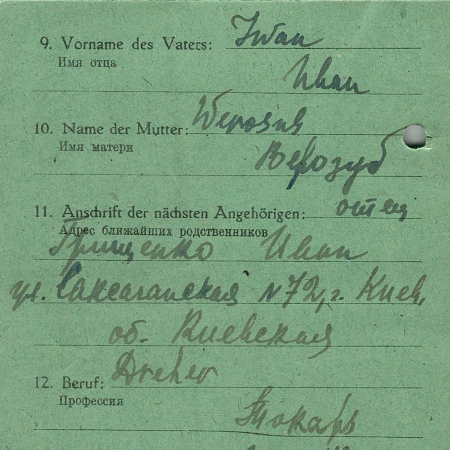 9. Vorname des Vaters: Iwan
Имя отца
Иван
10. Name der Mutter:
Имя матери
Верозуб
11. Anschrift der nächsten Angehörigen: отец
Адрес ближайших родственников
Грищенко Иван
ул. Саксаганская N 72, г. Киев,
об. Киевская
12. Beruf: Dreher
Профессия
Токарь